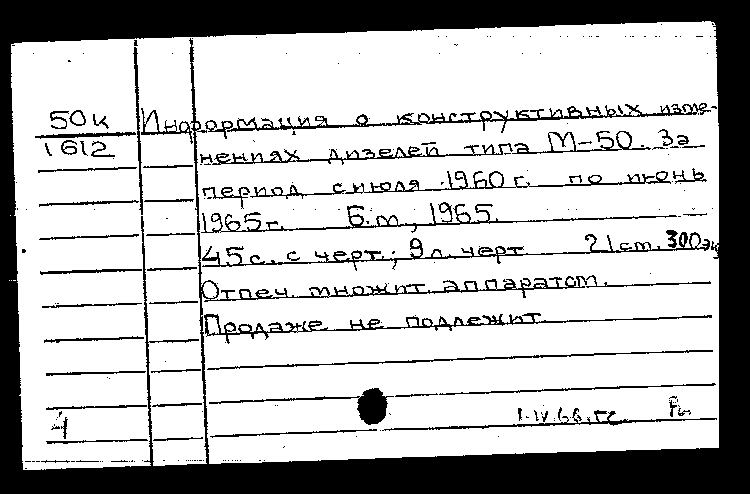 50к Информация о конструктивных изме-
1612 нениях дизелей типа М-50. За
период с июля 1960 г. по июнь
1965 г. Б.м., 1965.
45 с. с черт.; 9 л. черт 21 см. 300 экз
Отпеч. множит. аппаратом.
Продаже не подлежит.
4 1.IV.66.